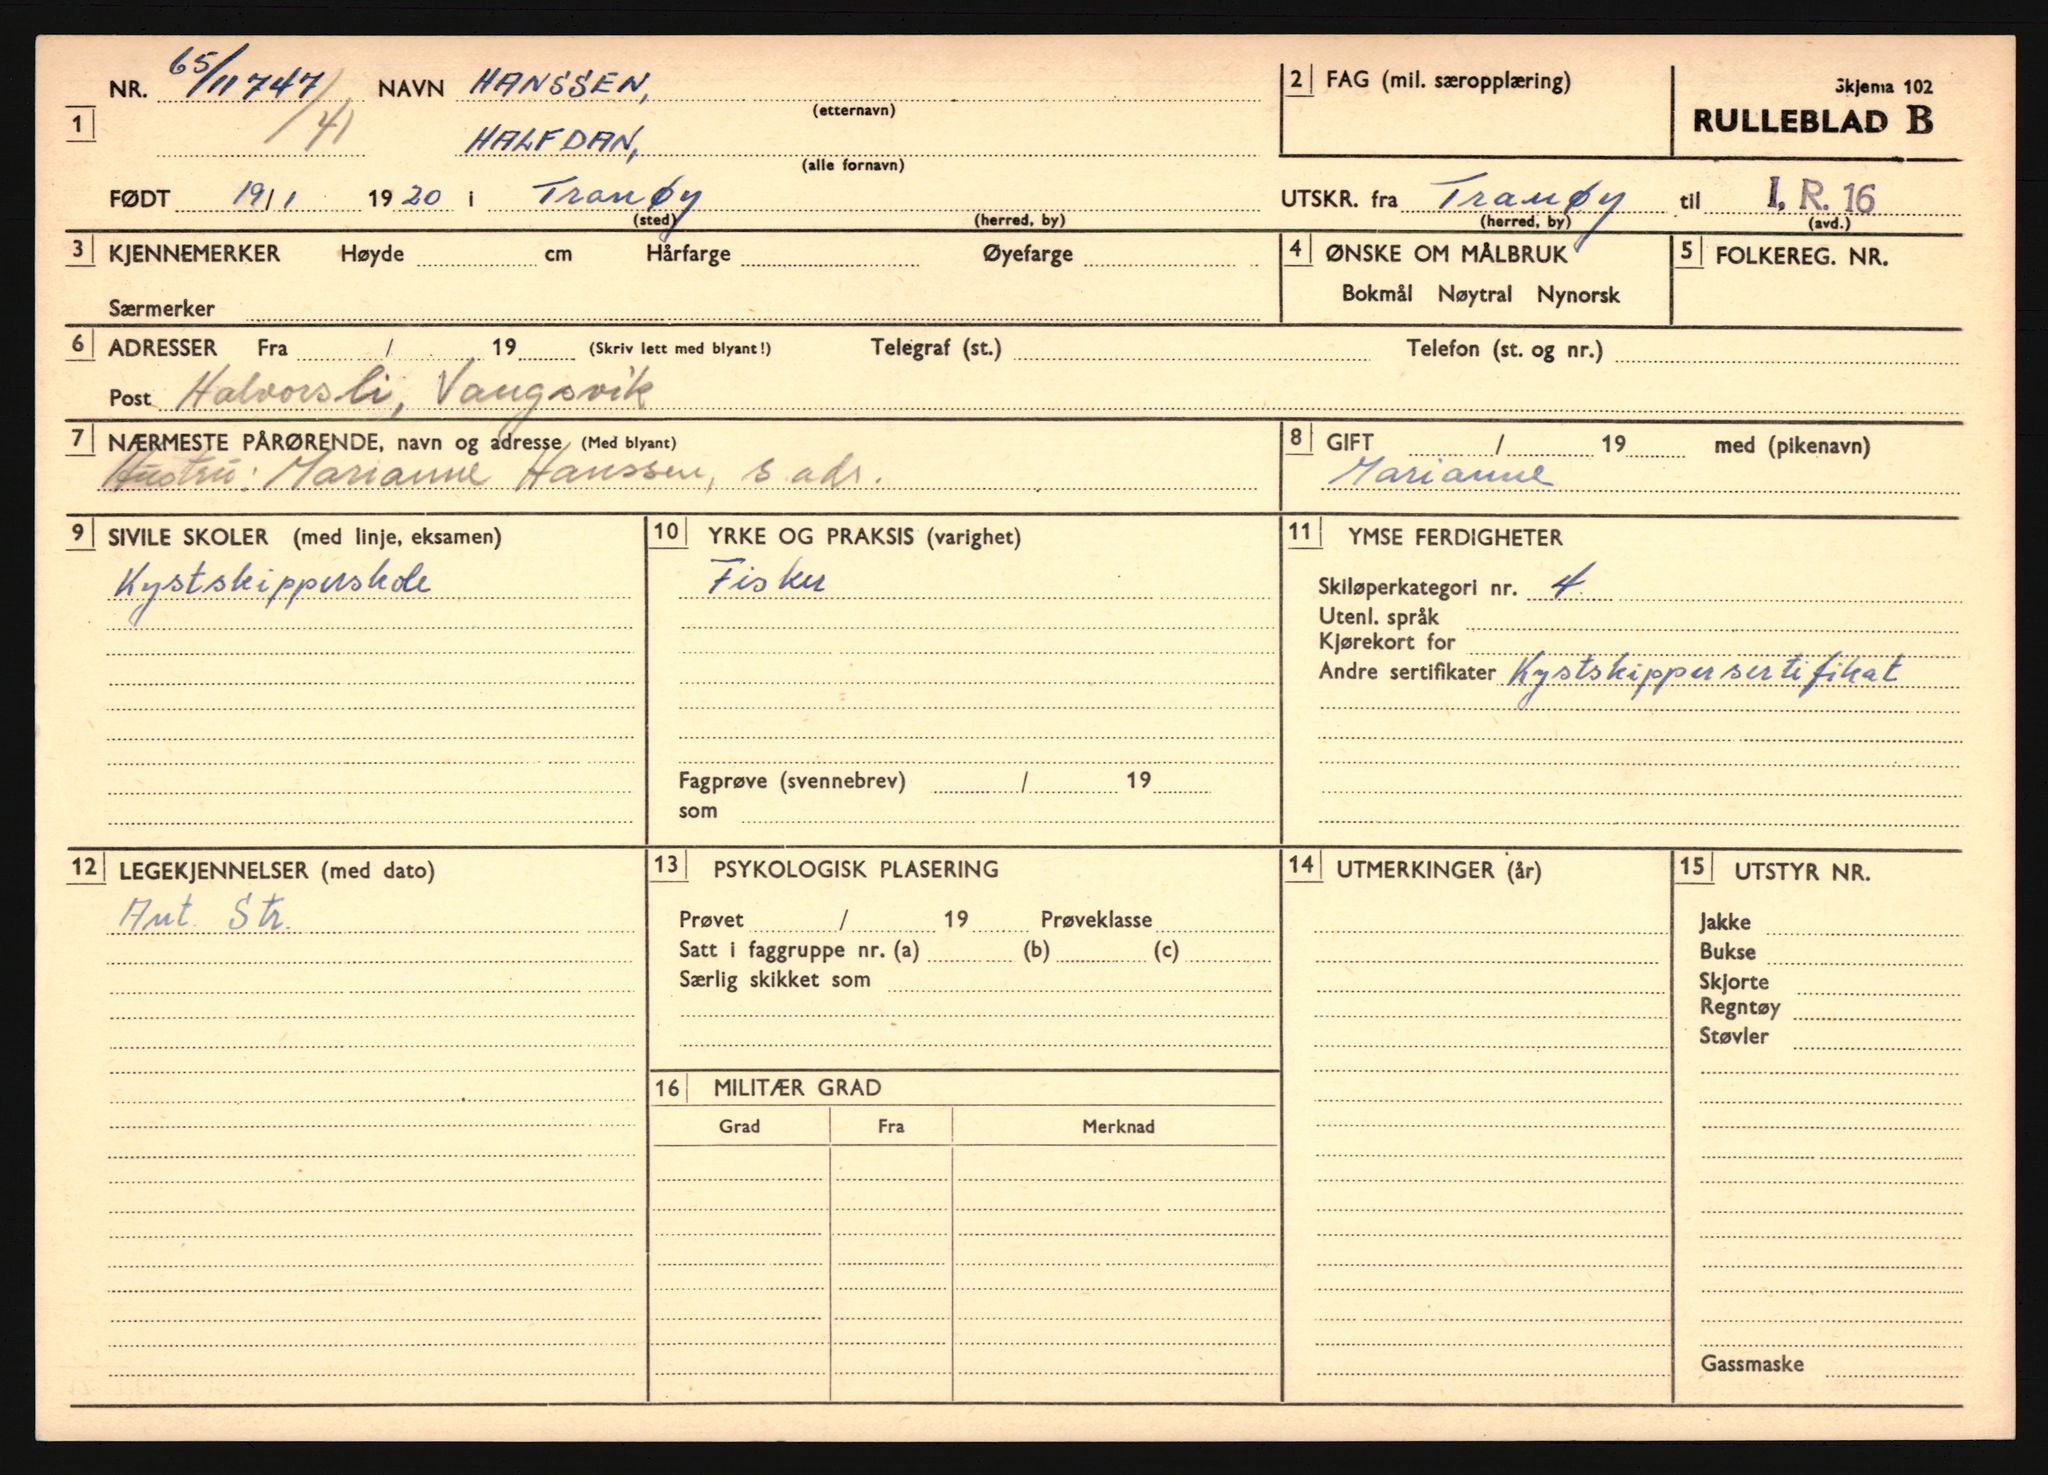 NR. 65/11747/41 NAVN HANSSEN, (etternavn)
1
HALFDAN, (alle fornavn)
FØDT 19/1 1920 i Tranøy (sted) (herred, by)
2 FAG (mil. særopplæring)
Skjema 102
RULLEBLAD B
UTSKR. fra Tranøy (herred, by) til I.R. 16 (avd.)
3 KJENNEMERKER Høyde cm Hårfarge Øyefarge
Særmerker
4 ØNSKE OM MÅLBRUK
Bokmål Nøytral Nynorsk
5 FOLKEREG. NR.
6 ADRESSER Fra / 19 (Skriv lett med blyant!) Telegraf (st.) Telefon (st. og nr.)
Post Halvorsli, Vangsvik
7 NÆRMESTE PÅRØRENDE, navn og adresse (Med blyant)
Hustru: Marianne Hanssen, s. adr.
8 GIFT / 19 med (pikenavn)
Marianne
9 SIVILE SKOLER (med linje, eksamen)
Kystskipperskole
10 YRKE OG PRAKSIS (varighet)
Fisker
Fagprøve (svennebrev) / 19
som
11 YMSE FERDIGHETER
Skiløperkategori nr. 4
Utenl. språk
Kjørekort for
Andre sertifikater Kystskippersertifikat
12 LEGEKJENNELSER (med dato)
Ant. Str.
13 PSYKOLOGISK PLASERING
Prøvet / 19 Prøveklasse
Satt i faggruppe nr. (a) (b) (c)
Særlig skikket som
14 UTMERKINGER (år)
15 UTSTYR NR.
Jakke
Bukse
Skjorte
Regntøy
Støvler
Gassmaske
16 MILITÆR GRAD
Grad Fra Merknad